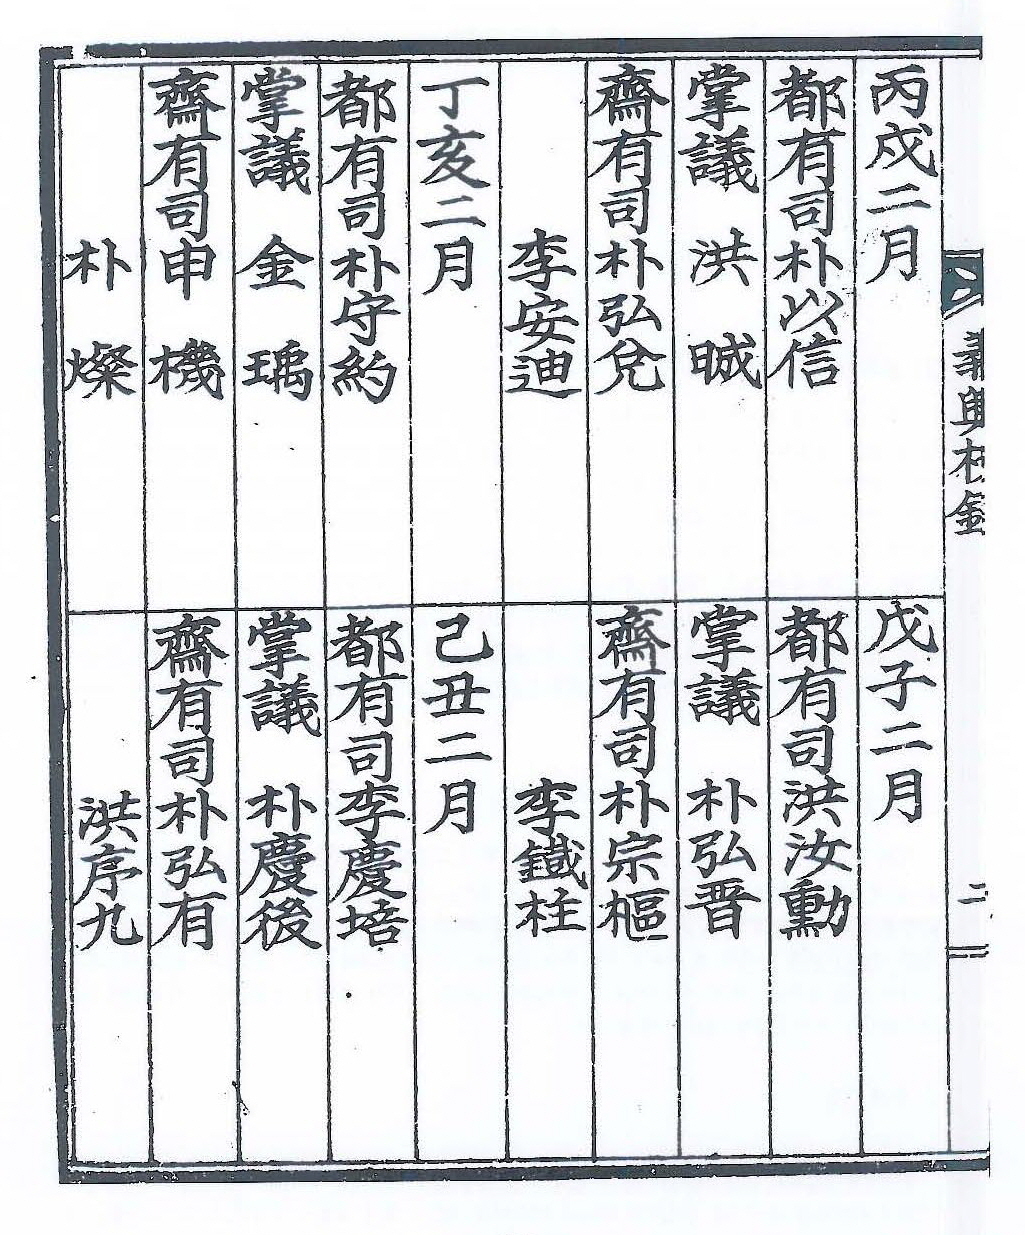 丙戌二月
都有司朴以信
掌議 洪 晠
齋有司朴弘兌
李安迪
丁亥二月
都有司朴守約
掌議 金 瑀
齋有司申 機
朴 燦
戊子二月
都有司洪汝勳
掌議 朴弘晋
齋有司朴宗樞
李鐵柱
己丑二月
都有司李慶培
掌議 朴慶後
齋有司朴弘有
洪序九
義興校錄
二